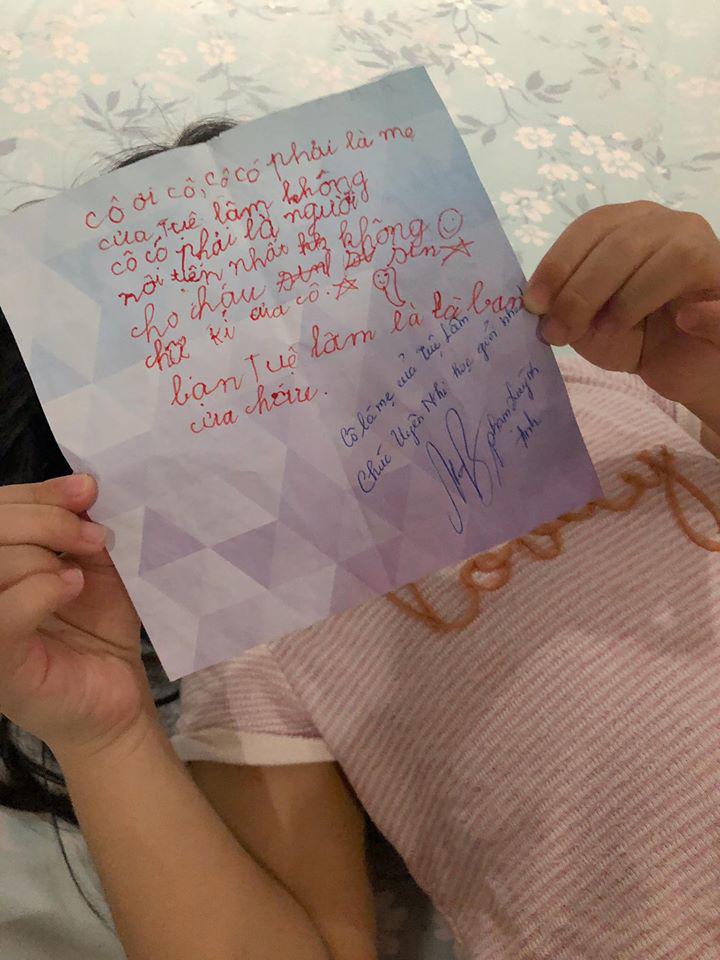 cô ơi cô, cô có phải là mẹ
của Tuệ lâm không
cô có phải là người
nổi tiến nhất không
cho cháu sin
chữ kí của cô.
bạn Tuệ lâm là là bạn
của cháu.
Cô là mẹ của Tuệ Lâm
Chúc Uyên Nhi học giỏi nhé!
phamquỳnh
Anh
loving